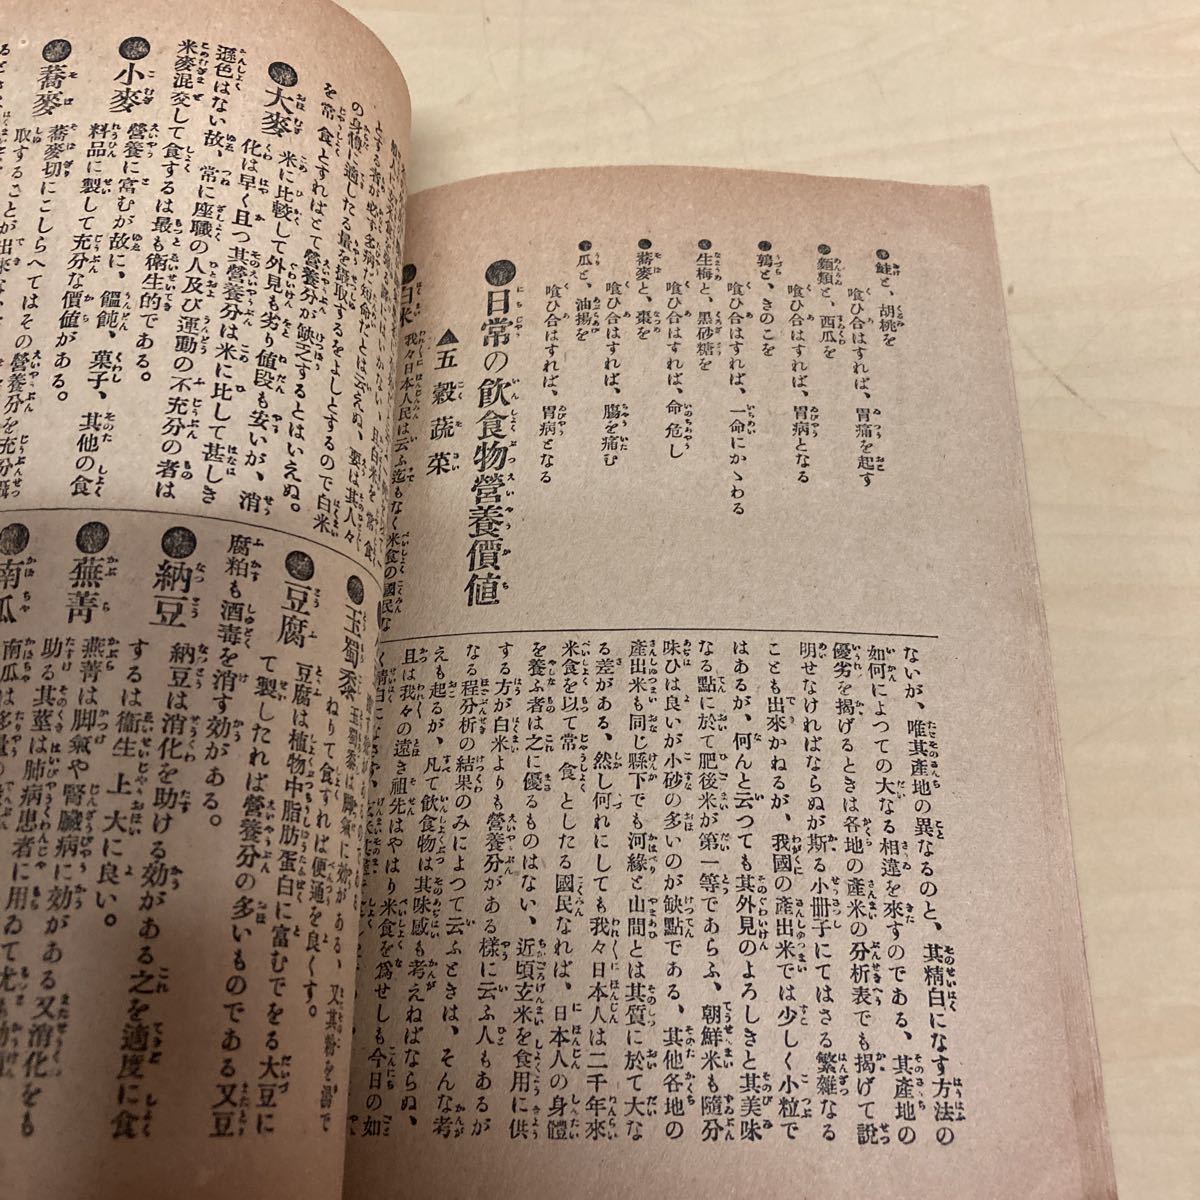 ●鮭と、胡桃を
喰ひ合はすれば、胃痛を起す
●麵類と、西瓜を
喰ひ合はすれば、胃病となる
●鶉と、きのこを
喰ひ合はすれば、一命にかゝわる
●生梅と、黑砂糖を
喰ひ合はすれば、命危し
●蕎麥と、棗を
喰ひ合はすれば、腸を痛む
●瓜と、油揚を
喰ひ合はすれば、胃病となる
●日常の飲食物營養價値
▲五穀蔬菜
●白米 我々日本人民は云ふ迄もなく米食の國民な
ないが、唯其產地の異なるのと、其精白になす方法の
如何によつての大なる相違を來すのである、其產地の
優劣を揭げるときは各地の產米の分析表でも揭げて說
明せなければならぬが斯る小册子にてはさる繁雜なる
ことも出來かねるが、我國の產出米では少しく小粒で
はあるが、何んと云つても其外見のよろしきと其美味
なる點に於て肥後米が第一等であらふ、朝鮮米も隨分
味ひは良いが小砂の多いのが缺點である、其他各地の
產出米も同じ縣下でも河緣と山間とは其質に於て大な
る差がある、然し何れにしても我々日本人は二千年來
米食を以て常食としたる國民なれば、日本人の身體
を養ふ者は之に優るものはない、近頃玄米を食用に供
する方が白米よりも營養分がある樣に云ふ人もあるが
なる程分析の結果のみによつて云ふときは、そんな考
えも起るが、凡て飲食物は其味感も考えねばならぬ、
且は我々の遠き祖先はやはり米食を爲せしも今日の如
の身體に適したる量を攝取するをよしとするので白米
を常食とすればとて營養分が缺乏するとはいえぬ。
●大麥 米に比較して外見も劣り値段も安いが、消
化は早く且つ其營養分は米に比して甚しき
遜色はない故、常に座職の人及び運動の不充分の者は
米麥混交して食するは最も衛生的である。
●小麥 營養に富むが故に、饂飩、菓子、其他の食
料品に製して充分な價値がある。
●蕎麥 蕎麥切にこしらへてはその營養分を充分攝
取することが出來な
●玉蜀黍 玉蜀黍は脚氣に効がある、又其粉を湯で
ねりて食すれば便通を良くす。
●豆腐 豆腐は植物中脂肪蛋白に富むでをる大豆に
て製したれば營養分の多いものである又豆
腐粕も酒毒を消す効がある。
●納豆 納豆は消化を助ける効がある之を適度に食
するは衞生上大に良い。
●蕪菁 蕪菁は脚氣や腎臟病に効がある又消化をも
助る其莖は肺病患者に用ゐて尤も
●南瓜 南瓜は多量の